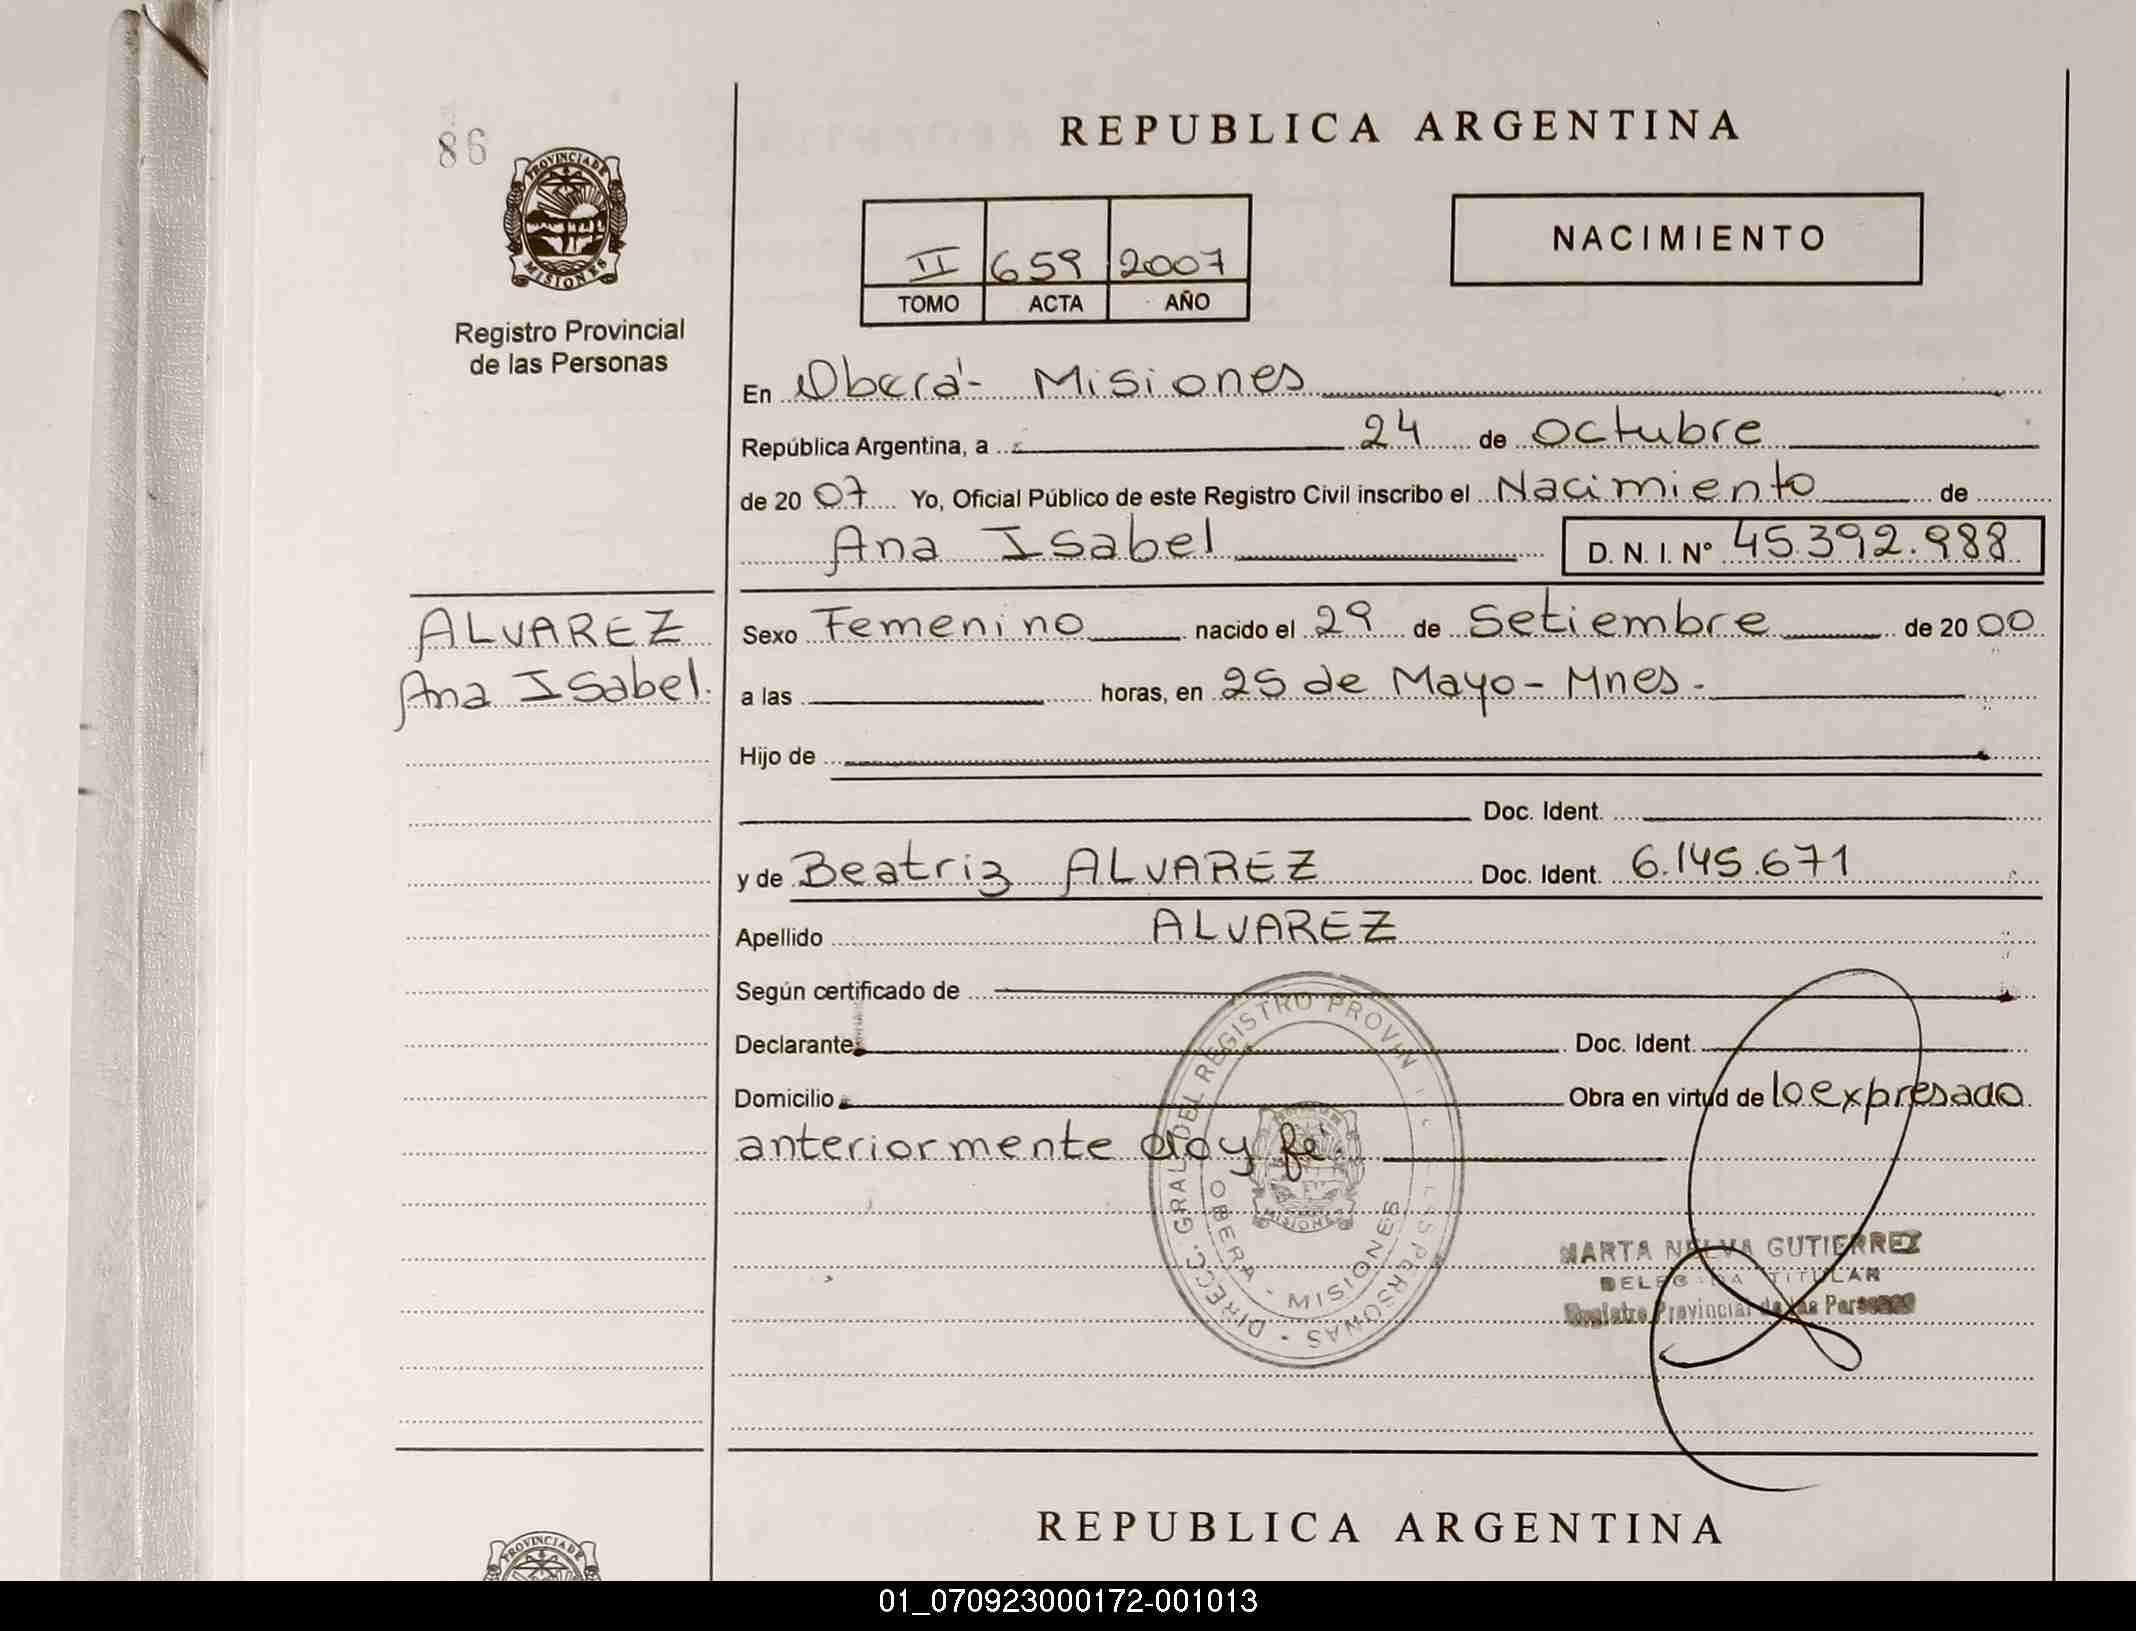 86
PROVINCIA DE
MISIONES
Registro Provincial
de las Personas
REPUBLICA ARGENTINA
II 659 2007
TOMO ACTA AÑO
NACIMIENTO
En Oberá - Misiones
República Argentina, a 24 de Octubre
de 20 07 Yo, Oficial Público de este Registro Civil inscribo el Nacimiento de
Ana Isabel D. N. I. N° 45.392.988
ALVAREZ
Ana Isabel.
Sexo Femenino nacido el 29 de Setiembre de 20 00
a las horas, en 25 de Mayo - Mnes.
Hijo de
Doc. Ident.
y de Beatriz ALVAREZ Doc. Ident. 6.145.671
Apellido ALVAREZ
Según certificado de
Declarante Doc. Ident.
Domicilio Obra en virtud de lo expresado
anteriormente doy fé.
DIRECC. GRAL. DEL REGISTRO PROVIN PERSONAS
OBERA - MISIONES
MISIONES
MARTA NELVA GUTIERREZ
DELEGADA TITULAR
Registro Provincial de las Personas
REPUBLICA ARGENTINA
PROVINCIA DE
01_070923000172-001013